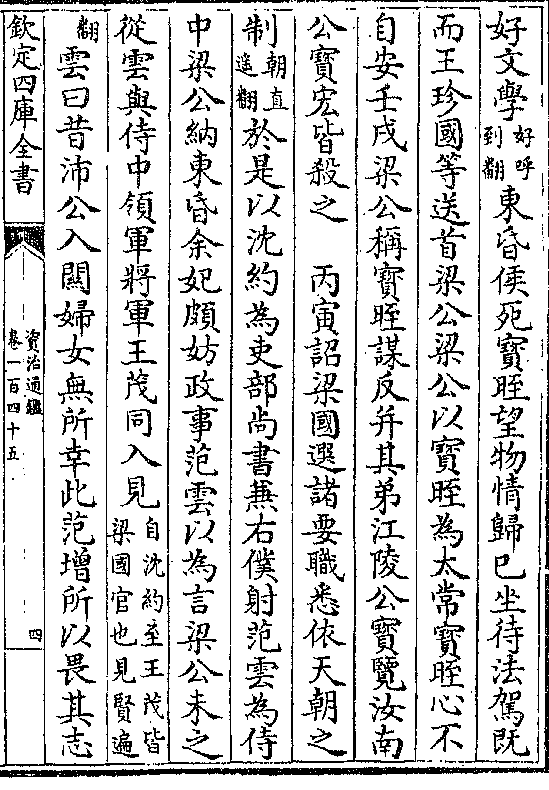 好文學好呼到翻東昏侯死寶晊望物情歸已坐待法駕既
而王珍國等送首梁公梁公以寶晊為太常寶晊心不
自安壬戌梁公稱寶晊謀反并其弟江陵公寶覽汝南
公寶宏皆殺之　丙寅詔梁國選諸要職悉依天朝之
制朝直遥翻於是以沈約為吏部尚書兼右僕射范雲為侍
中梁公納東昏余妃頗妨政事范雲以為言梁公未之
從雲與侍中領軍將軍王茂同入見自沈約至王茂皆梁國官也見賢遍
翻雲曰昔沛公入關婦女無所幸此范增所以畏其志
欽定四庫全書
資治通鑑
卷一百四十五
四